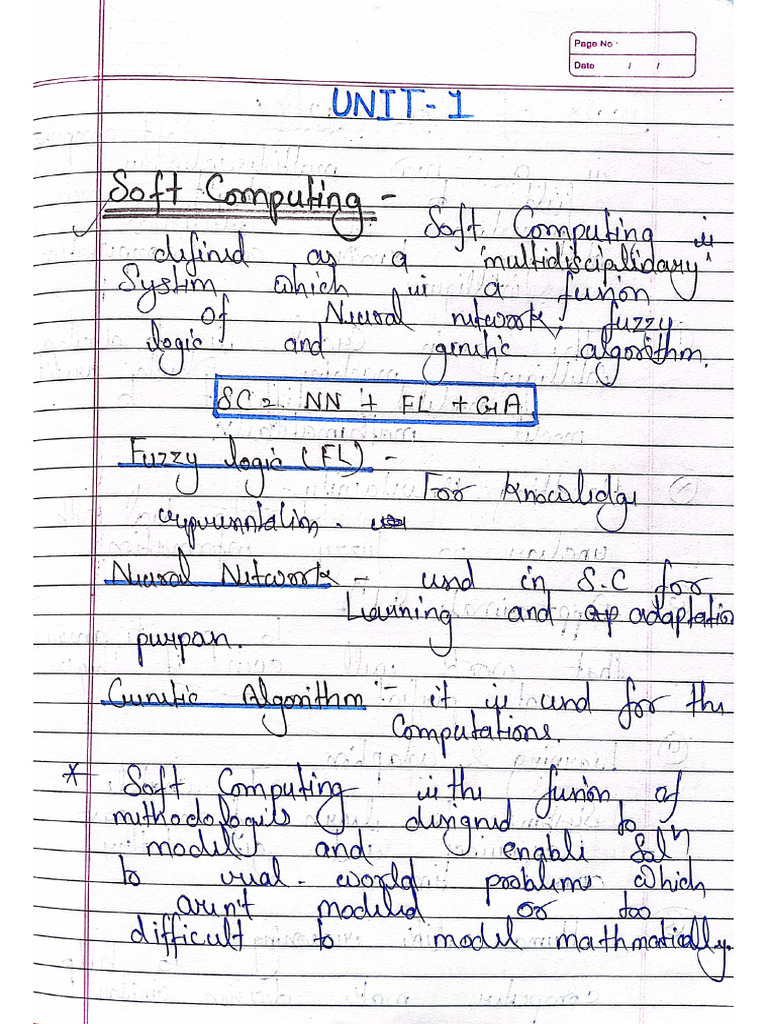 Page No :
Date / /
UNIT-1
Soft Computing -
Soft Computing is
defined as a "multidisciplidary"
System which is a fusion
of Neural network, fuzzy
logic and genetic algorithm.
SC = NN + FL + GA
Fuzzy logic (FL) -
For knowledge
representation.
Neural Network - used in S.C for
Learning and adaptation
purpose.
Genetic Algorithm :- it is used for the
Computations.
* Soft Computing is the fusion of
methodologies designed to
model and enable Solⁿ
to real-world problems which
aren't modeled or too
difficult to model mathmatically.